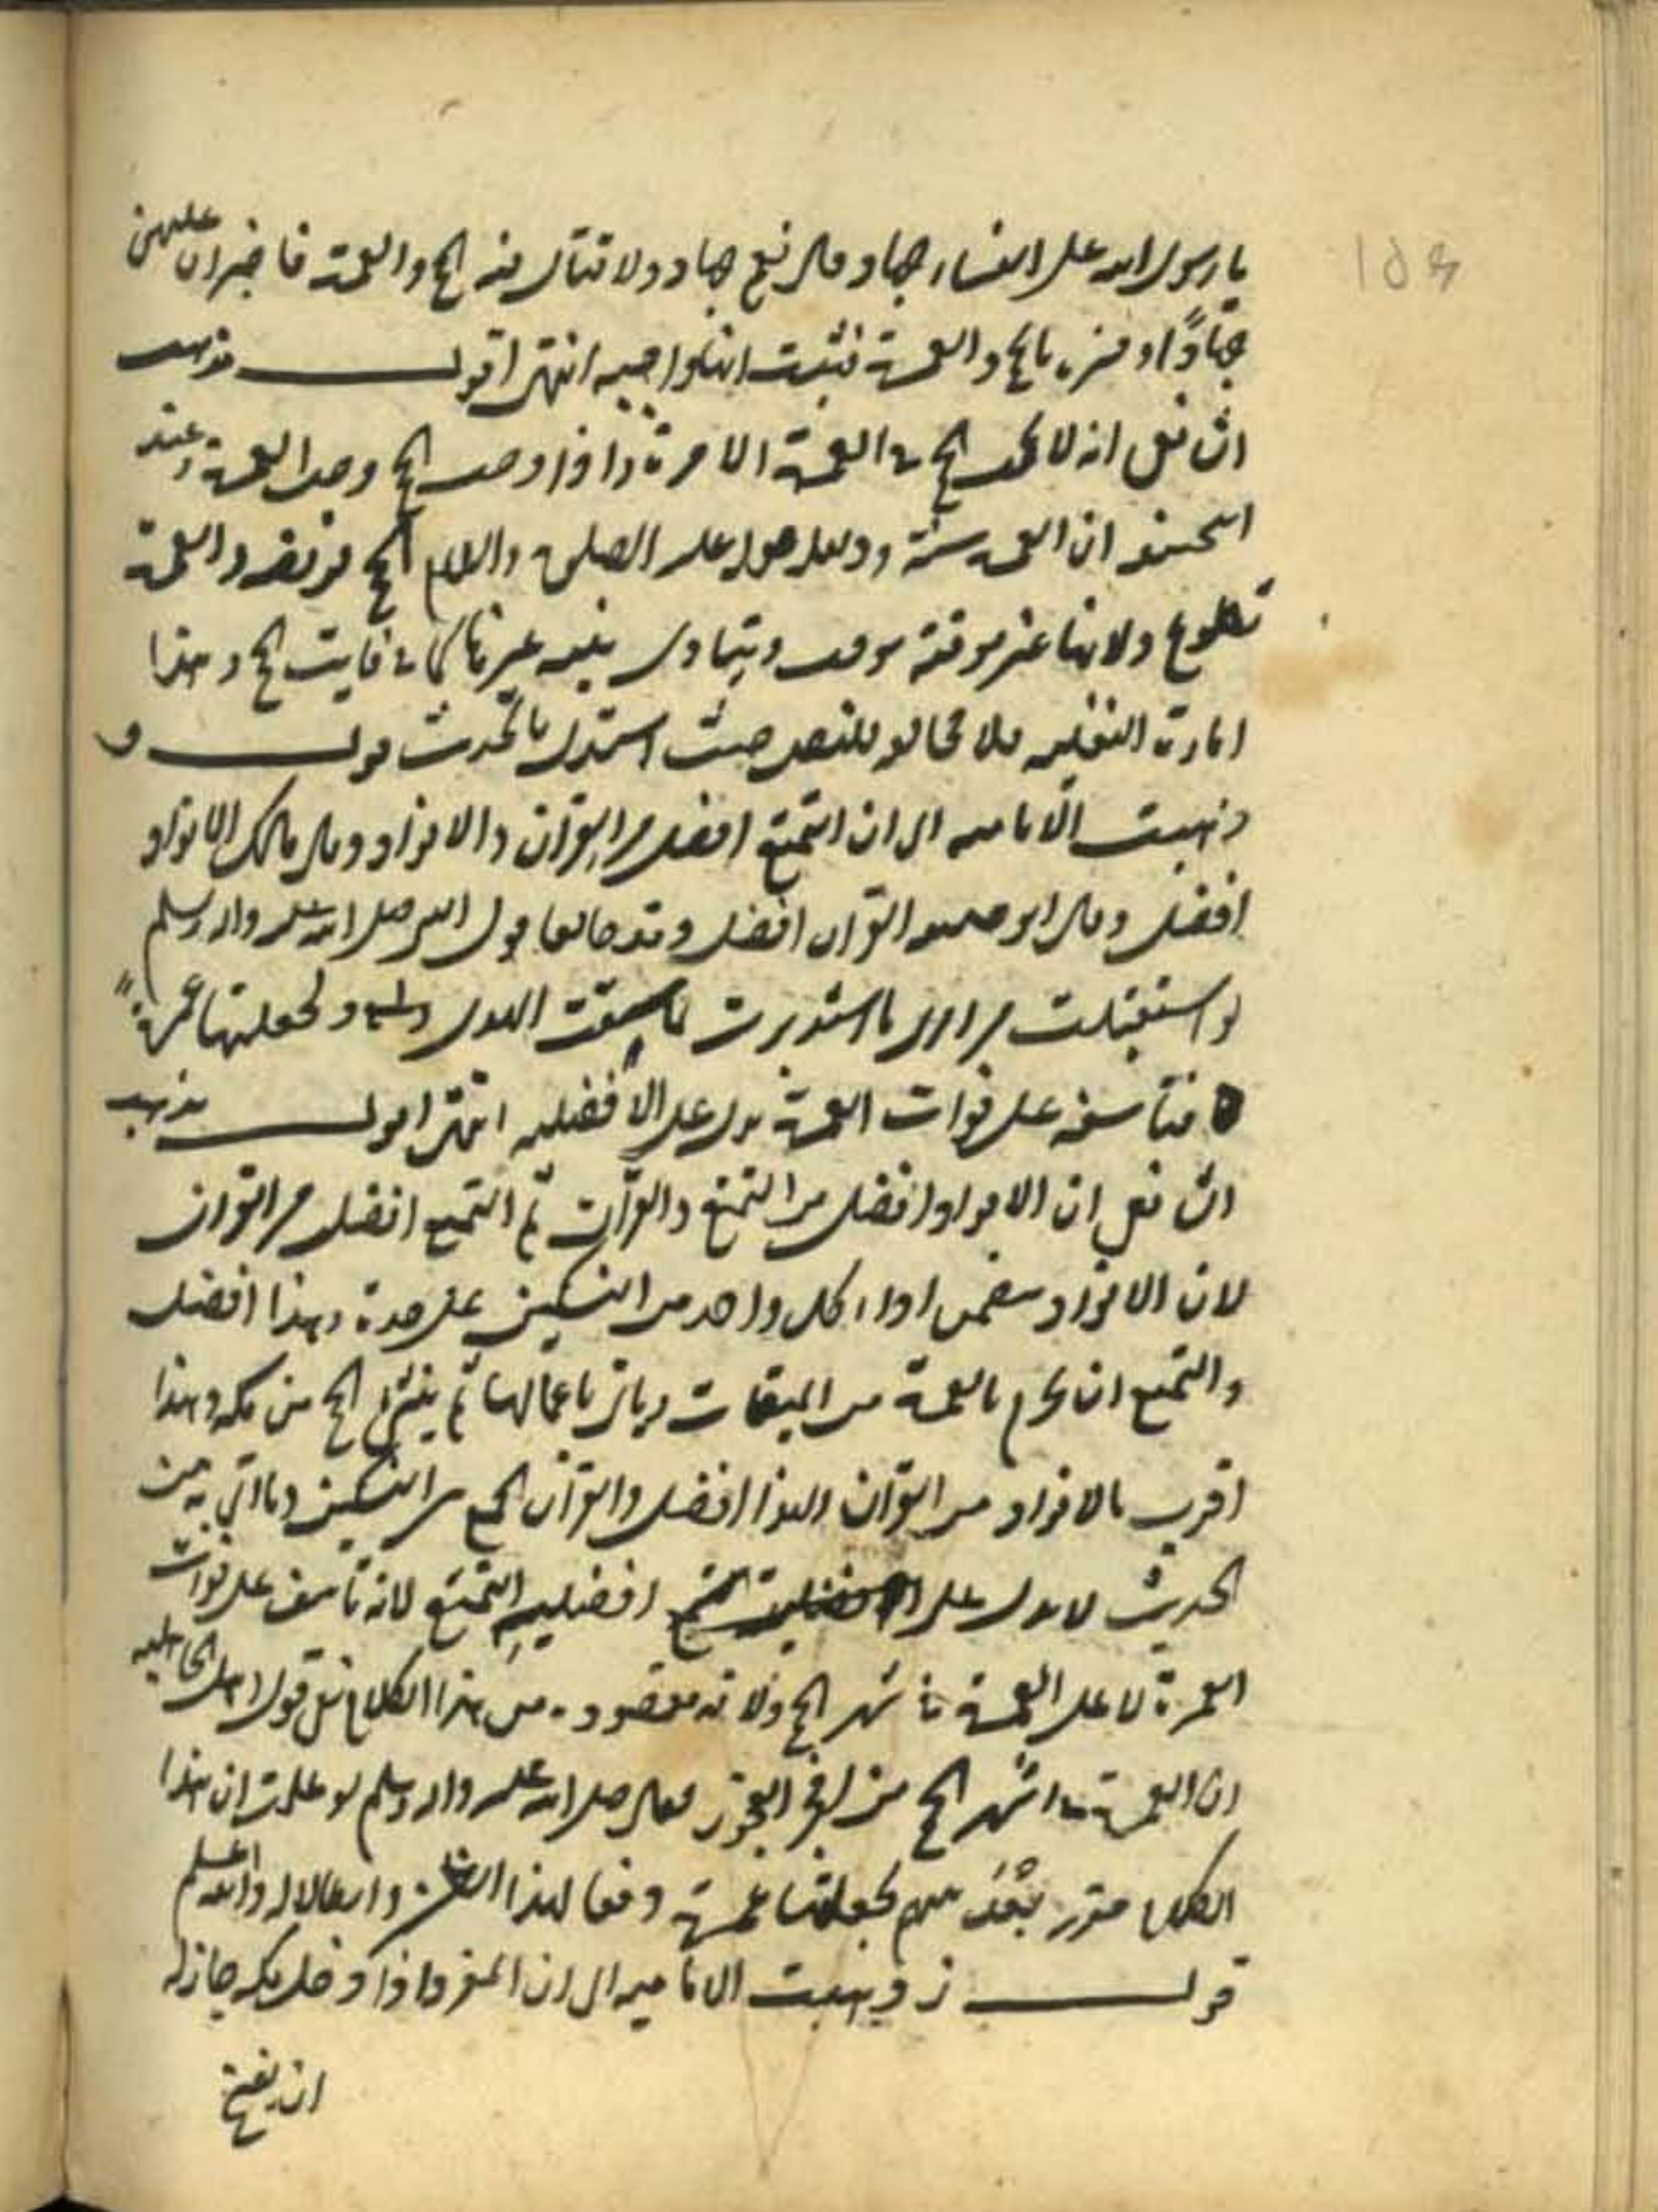 يا رسول الله على النساء جهاد قال نعم جهاد ولا قتال فيه الحج والعمرة فاخبر ان عليهن
جهادًا وفسره بالحج والعمرة فثبت انها واجبه انتهى اقول مذهب
الشافعى انه لا يجب الحج و العمرة الا مرة واحدة وعند
الحنفيه ان العمرة سنة ودليله قوله عليه الصلوة والسلام الحج فريضه والعمرة
تطوع ولانها غير موقتة بوقت ويتادى بنيه غيرها كما فى فايت الحج وهذا
امارة النفليه فلا مخالفه للنص حيث استدل بالحديث قوله و
ذهبت الاماميه الى ان التمتع افضل من القران والافراد وقال مالك الافراد
افضل وقال ابو حنيفه القران افضل وقد خالفا قول النبى صلى الله عليه واله وسلم
لو استقبلت من امرى ما استدبرت لما سقت الهدى ولجعلتها عمرةً
فتاسفه على فوات العمرة يدل على الافضليه انتهى اقول مذهب
الشافعى ان الافراد افضل من التمتع والقران ثم التمتع افضل من القران
لان الافراد يتضمن اداء كل واحد من النسكين على حدة وهذا افضل
والتمتع ان يحرم بالعمرة من الميقات وياتى باعمالها ثم ينشئ الحج من مكه وهذا
اقرب بالافراد من القران ولهذا افضل والقران الجمع بين النسكين وما اتى به من
الحديث لا يدل على افضليه التمتع لانه تاسف على فوات
العمرة لا على العمرة فى اشهر الحج ولانه مقصوده من هذا الكلام نفى قول اهل الجاهليه
ان العمرة فى اشهر الحج من افجر الفجور فقال صلى الله عليه واله وسلم لو علمت ان هذا
الكلام مقرر بعد منهم لجعلتها عمرة دفعا لهذا وابطالا له والله اعلم
قوله ز وذهبت الاماميه الى ان المفرد اذا دخل مكه جاز له
ان يفسخ